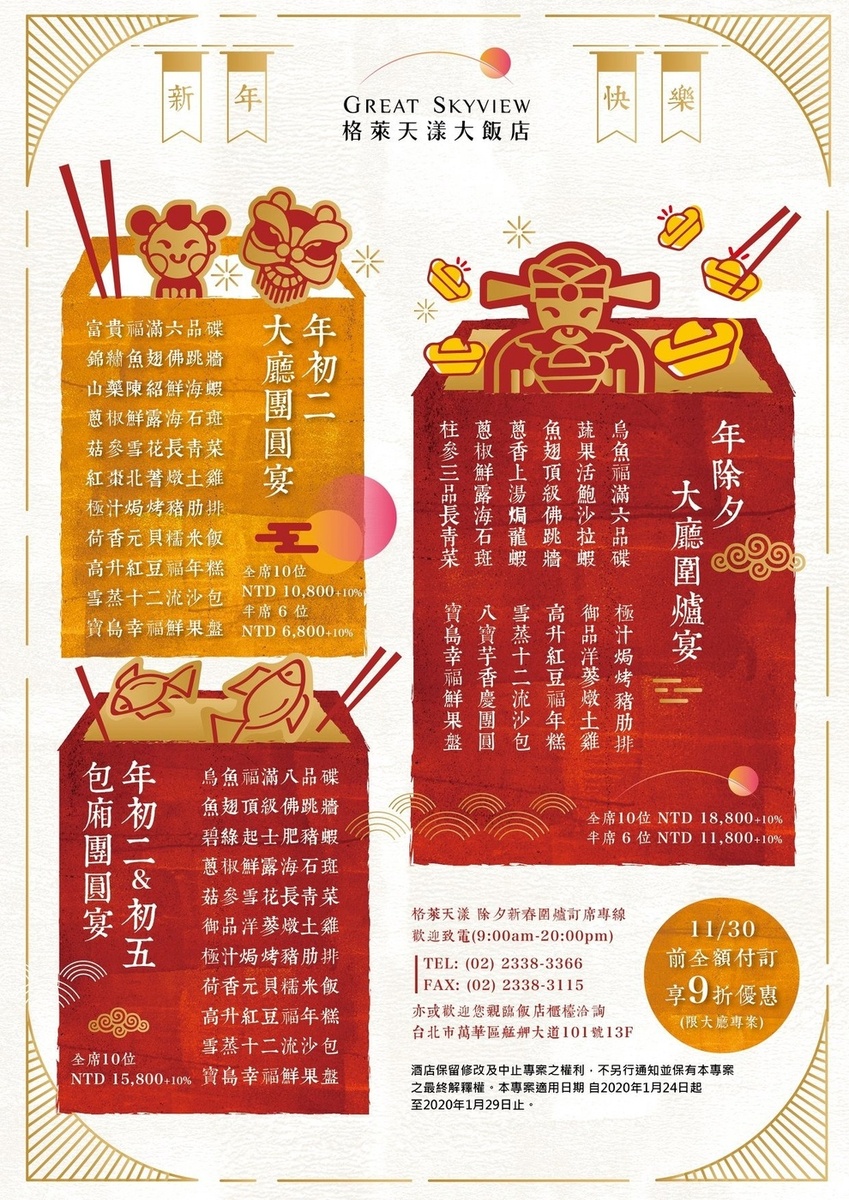 新年
快樂
GREAT SKYVIEW
格萊天漾大飯店
年初二
大廳團圓宴
富貴福滿六品碟
錦繡魚翅佛跳牆
山藥陳紹鮮海蝦
蔥椒鮮露海石斑
菇參雪花長青菜
紅棗北蓍燉土雞
極汁焗烤豬肋排
荷香元貝糯米飯
高升紅豆福年糕
雪蒸十二流沙包
寶島幸福鮮果盤
全席10位
NTD 10,800+10%
半席 6 位
NTD 6,800+10%
年除夕
大廳圍爐宴
烏魚福滿六品碟
蔬果活鮑沙拉蝦
魚翅頂級佛跳牆
蔥香上湯焗龍蝦
蔥椒鮮露海石斑
柱參三品長青菜
極汁焗烤豬肋排
御品洋蔘燉土雞
高升紅豆福年糕
雪蒸十二流沙包
八寶芋香慶團圓
寶島幸福鮮果盤
全席10位 NTD 18,800+10%
半席 6 位 NTD 11,800+10%
年初二&初五
包廂團圓宴
烏魚福滿八品碟
魚翅頂級佛跳牆
碧綠起士肥豬蝦
蔥椒鮮露海石斑
菇參雪花長青菜
御品洋蔘燉土雞
極汁焗烤豬肋排
荷香元貝糯米飯
高升紅豆福年糕
雪蒸十二流沙包
寶島幸福鮮果盤
全席10位
NTD 15,800+10%
格萊天漾 除夕新春圍爐訂席專線
歡迎致電(9:00am-20:00pm)
TEL: (02) 2338-3366
FAX: (02) 2338-3115
亦或歡迎您親臨飯店櫃檯洽詢
台北市萬華區艋舺大道101號13F
11/30
前全額付訂
享9折優惠
(限大廳專案)
酒店保留修改及中止專案之權利，不另行通知並保有本專案
之最終解釋權。本專案適用日期 自2020年1月24日起
至2020年1月29日止。